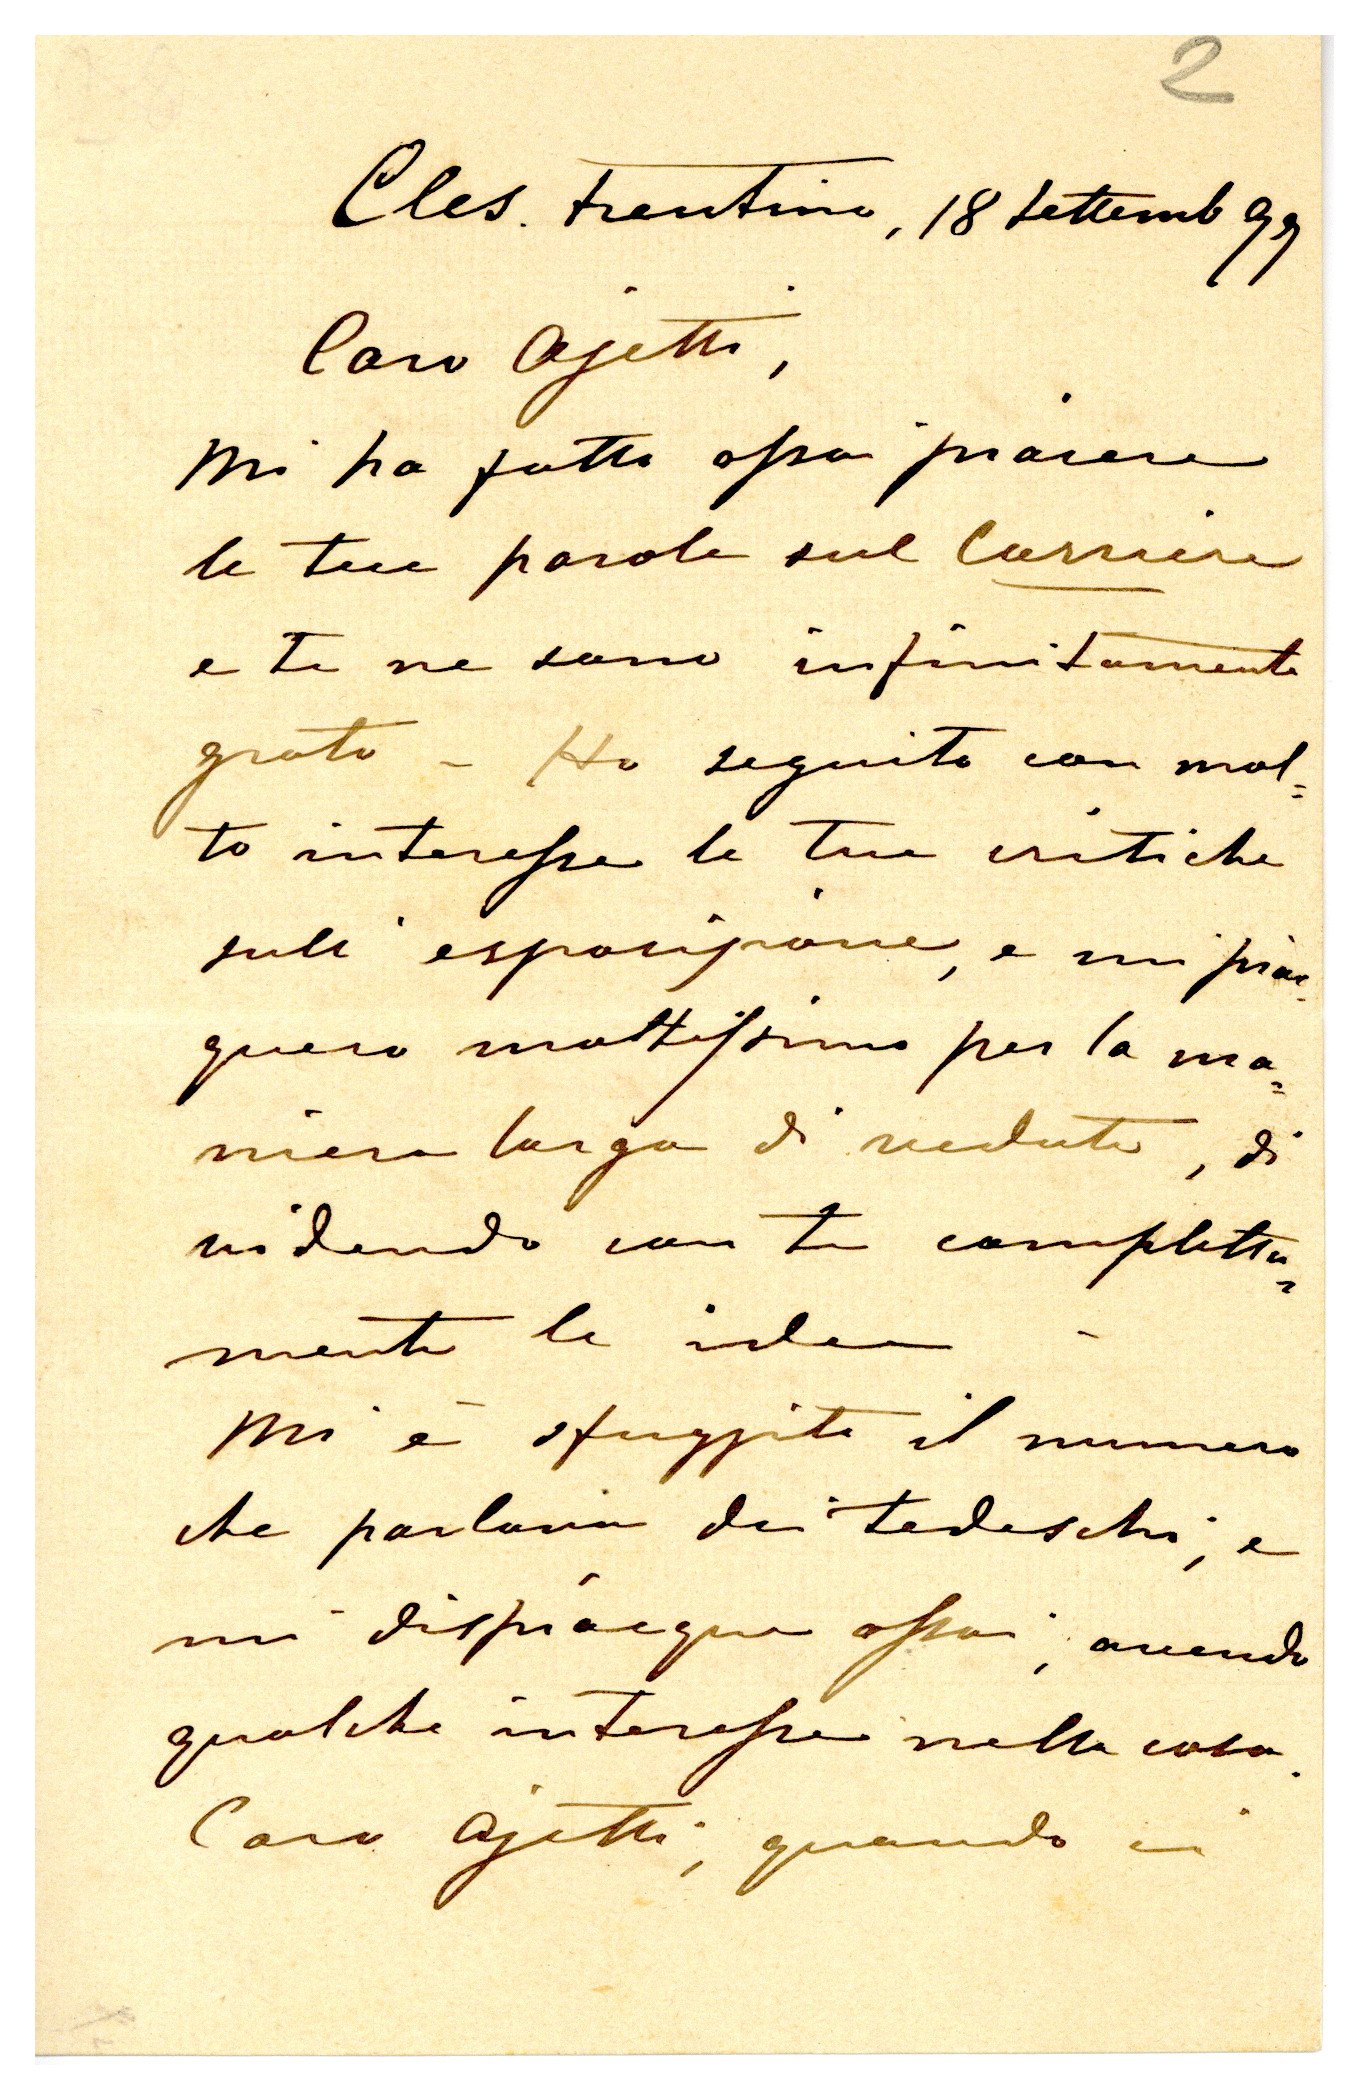 2
Cles. Trentino, 18 Settemb 99
Caro Ojetti,
Mi ha fatto assai piacere
le tue parole sul Corriere
e te ne sono infinitamente
grato - Ho seguito con mol=
to interesse le tue critiche
sull'esposizione, e mi piac=
quero moltissimo per la ma=
niera larga di vedute, di
videndo con te completta=
mente le idee -
Mi è sfuggito il numero
che parlava dei tedeschi, e
mi dispiacque assai, avendo
qualche interesse nella cosa.
Caro Ojetti, quando ci